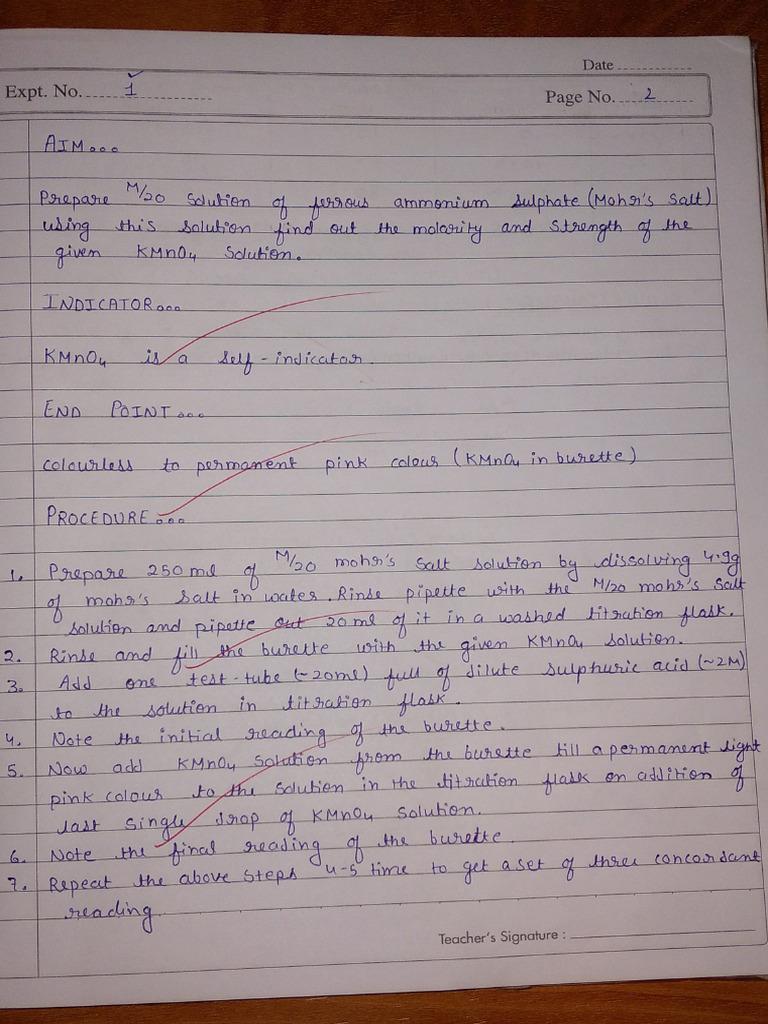 Date
Expt. No. 1
Page No. 2
AIM...
Prepare M/20 solution of ferrous ammonium sulphate (Mohr's salt)
using this solution find out the molarity and strength of the
given KMnO4 solution.
INDICATOR...
KMnO4 is a self-indicator.
END POINT...
colourless to permanent pink colour (KMnO4 in burette)
PROCEDURE...
1. Prepare 250 ml of M/20 mohr's salt solution by dissolving 4.9g
of mohr's salt in water. Rinse pipette with the M/20 mohr's salt
solution and pipette out 20 ml of it in a washed titration flask.
2. Rinse and fill the burette with the given KMnO4 solution.
3. Add one test-tube (~20ml) full of dilute sulphuric acid (~2M)
to the solution in titration flask.
4. Note the initial reading of the burette.
5. Now add KMnO4 solution from the burette till a permanent light
pink colour to the solution in the titration flask on addition of
last single drop of KMnO4 solution.
6. Note the final reading of the burette.
7. Repeat the above steps 4-5 time to get a set of three concordant
reading
Teacher's Signature :